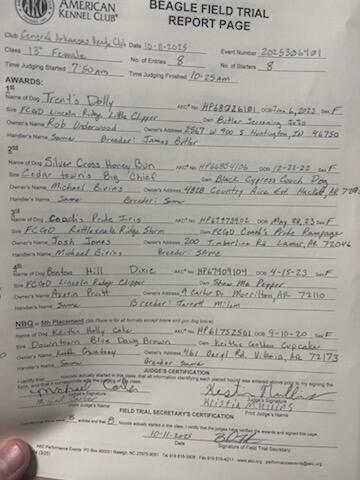 AKC
AMERICAN KENNEL CLUB®
BEAGLE FIELD TRIAL
REPORT PAGE
Club Central Arkansas Beagle Club Date 10-11-2025 Event Number
Class 13" Female No. of Entries 8 No. of Starters 8
Time Judging Started 7:50am Time Judging Finished 10:25am
AWARDS:
1st
Name of Dog Trent's Dolly AKC® No. DOB Sex F
Sire FCGD Lincoln Ridge Little Clipper Dam Butler Screaming JoJo
Owner's Name Rob Underwood Owner's Address 2567 W 900 S Huntington, IN 46750
Handler's Name Same Breeder: James Butler
2nd
Name of Dog Silver Cross Honey Bun AKC® No. HP66854106 DOB 12-22-22 Sex F
Sire Cedar Town's Big Chief Dam Black Cypress Couch Dog
Owner's Name Michael Bivins Owner's Address 4828 Country Aire Est Haskell, AR
Handler's Name Same Breeder: Same
3rd
Name of Dog Coach's Pride Iris AKC® No. DOB May 28, 23 Sex F
Sire FCGD Rattlesnake Ridge Storm Dam FCGD Coach's Pride Rampage
Owner's Name Josh Jones Owner's Address 200 Timberline Rd Lamar, AR 72046
Handler's Name Michael Bivins Breeder: Same
4th
Name of Dog Benton Hill Dixie AKC® No. HP67909104 DOB 4-15-23 Sex F
Sire FCGD Lincoln Ridge Clipper Dam Shaw Me Pepper
Owner's Name Austin Pratt Owner's Address 9 Carter Dr Morrilton, AR 72110
Handler's Name Same Breeder: Jarrett Milam
NBQ or 5th Placement (5th Place is for all formats except brace and gun dog brace)
Name of Dog Keith's Holly Cake AKC® No. HP61752501 DOB 9-10-20 Sex F
Sire Downtown Blue Dawg Brown Dam Keiths Golden Cupcake
Owner's Name Keith Owner's Address 461 Rd, Vilonia, AR 72173
Handler's Name Same Breeder: Same
JUDGE'S CERTIFICATION
I certify that starters actually started in this class, that all information identifying each placed hound was entered above prior to my signing the
form, and that it
Judge's Signature
Judge's Signature
Print Judge's Name
Kristie Mullins
Print Judge's Name
FIELD TRIAL SECRETARY'S CERTIFICATION
entered and that 8 hounds actually started in this class. I certify that the judges have verified the awards and signed this page.
10-11-2025
Date
Signature of Field Trial Secretary
AKC Performance Events PO Box 900051 Raleigh, NC 27675-9051 Tel 919 816-3908 Fax 919 816-4211 www.akc.org performanceevents@akc.org
(3/25)